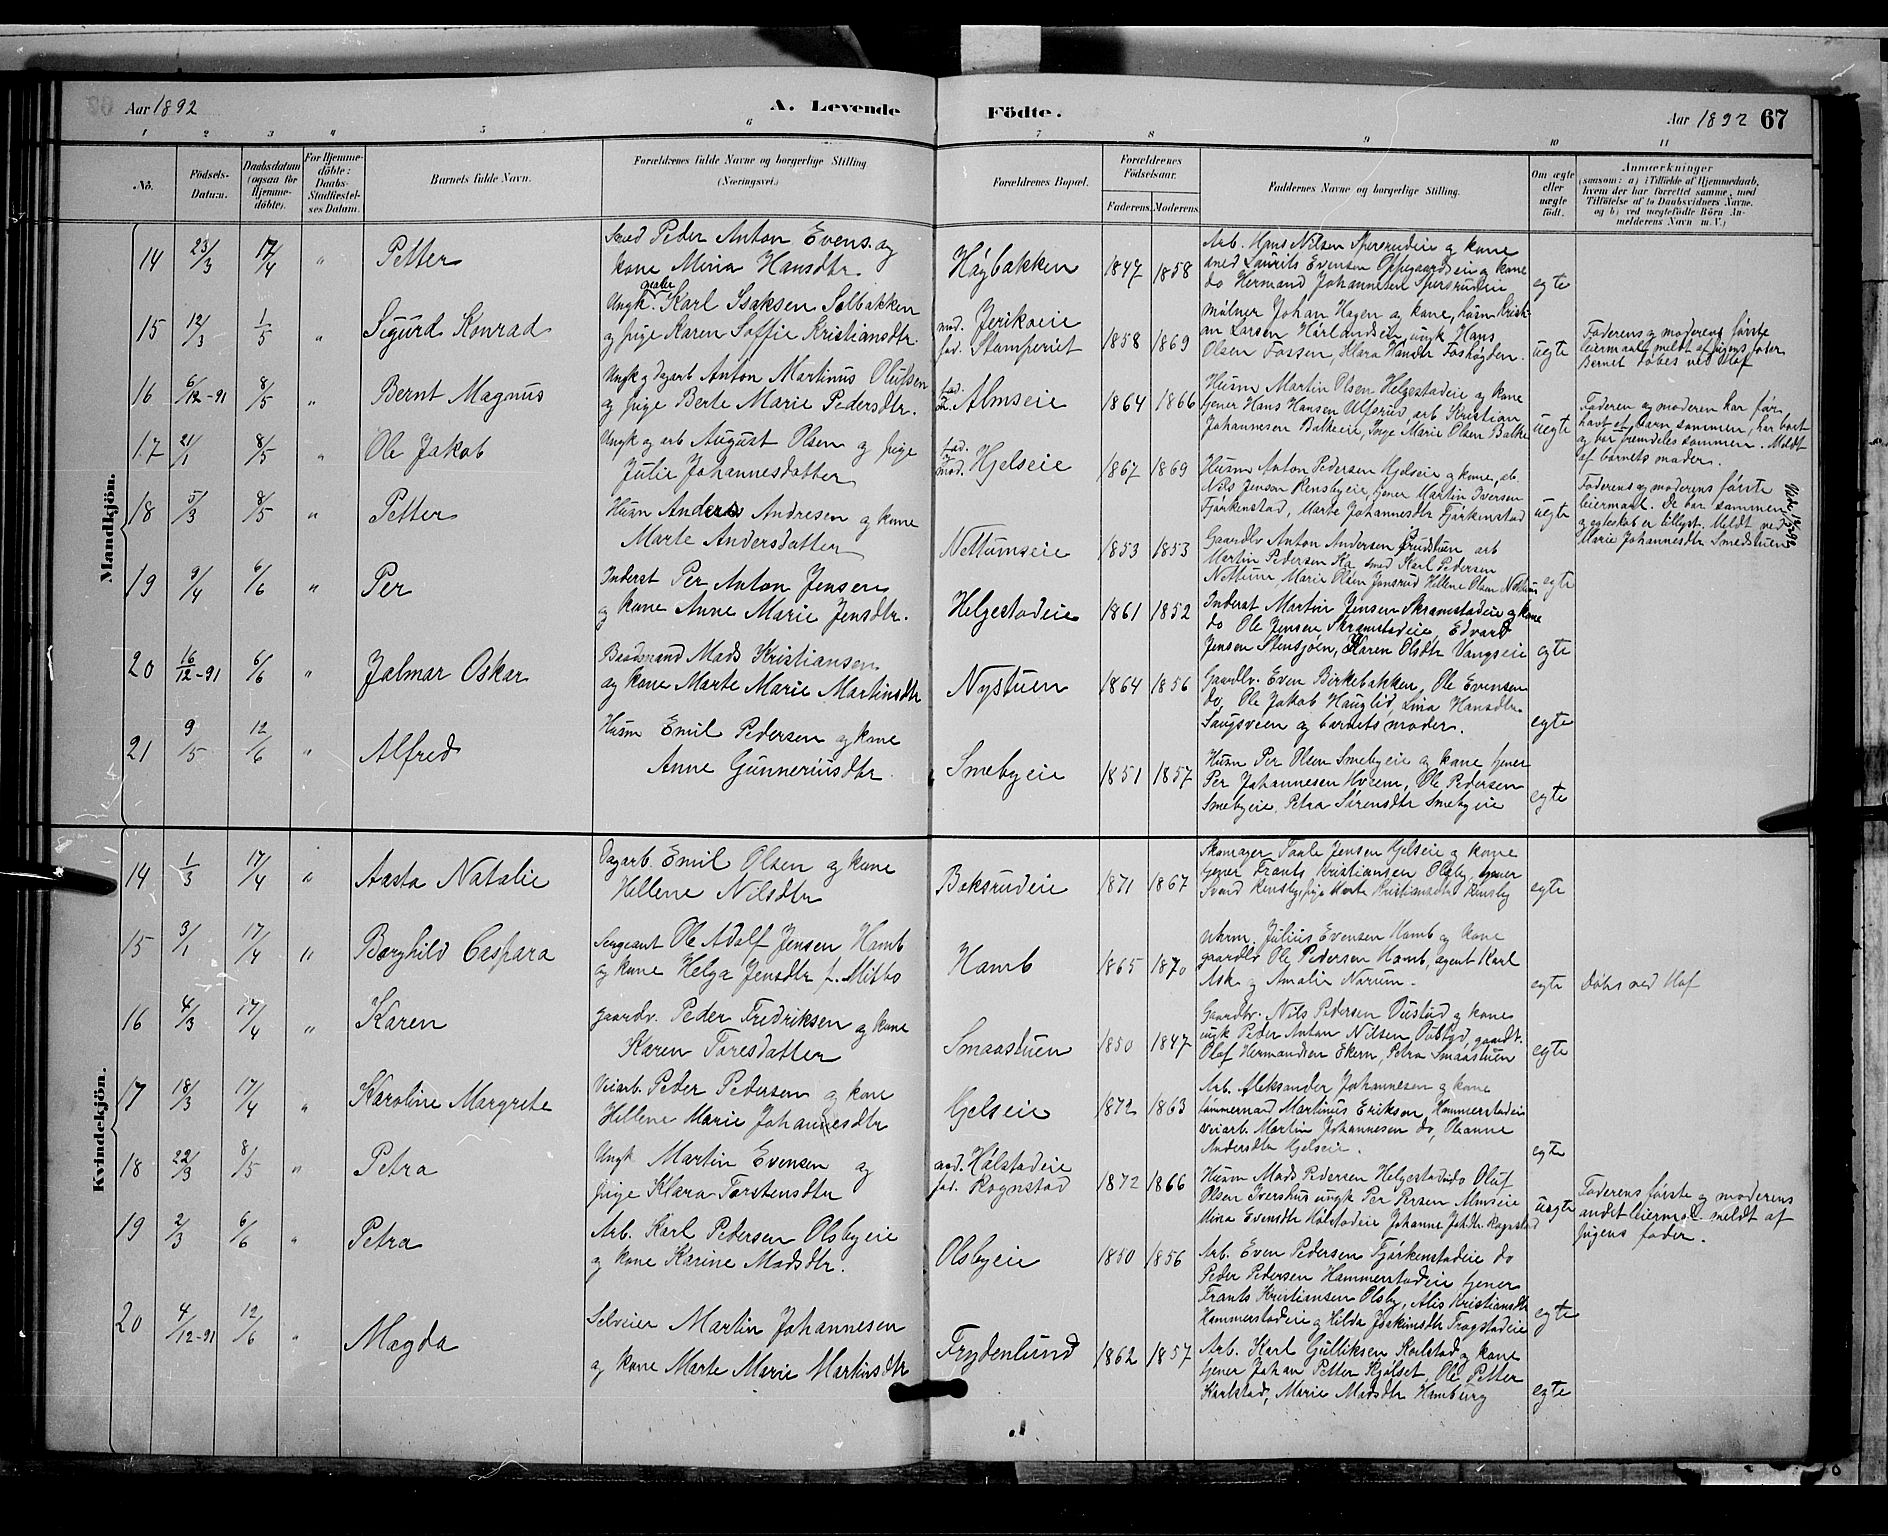 Aar 1892
A. Levende
Födte.
Aar 1892 67
1 2 3 4 5 6 7 8 9 10 11
No.
Födsels-Datum.
Daabsdatum (ogsaa for Hjemme-döbte).
For Hjemme-döbte: Daabs-Stadfæstel-ses Datum.
Barnets fulde Navn.
Forældrenes fulde Navne og borgerlige Stilling
(Næringsvei.)
Forældrenes Bopæl.
Forældrenes Födselsaar.
Faderens. Moderens.
Faddernes Navne og borgerlige Stilling.
Om ægte eller uægte födt.
Anmærkninger
(saasom: a) i Tilfælde af Hjemmedaab, hvem der har forrettet samme, med Tilföielse af to Daabsvidners Navne. og b) ved uægtefödte Börn An-melderens Navn m. V.)
Mandkjön.
14 23/3 17/4 " Petter
Smed Peder Anton Evens. og
kone Mina Hansdtr.
Høgbakken 1847 1858
Arb. Hans Nilsen Spersrudeie og kone
smed Laurits Evensen Oppegaardseie og kone
do Hermand Johannesen Spersrudeie
egte
15 12/3 1/5 " Sigurd Konrad
Ungk. Karl Isaksen Solbakken
og pige Karen Soffie Kristiansdtr.
mod. Jerikoeie
fad. Stamperiet 1858 1869
Mølner Johan Hagen og kone, husm Kristi-
an Larsen Hørlandseie, ungk Hans
Olsen Fossen, Klara Hansdtr Foshøgden.
uegte
Faderens og moderens første
leiermaal, meldt af pigens fader
Bernet døbes ved Hof
16 6/12-91 8/5 " Bernt Magnus
Ungk og dagarb Anton Martinus Olufsen
og pige Berte Marie Pedersdtr.
Almseie 1864 1866
Husm Martin Olsen Helgestadeie og kone
tjener Hans Hansen Ulfsrud, arb Kristian
Johannesen Balkeeie, Inge Marie Olsen Balke
uegte
Faderen og moderen har før
havt et barn sammen, har bort
og bor fremdeles sammen. Meldt
af barnets moder.
17 21/1 8/5 " Ole Jakob
Ungk og arb August Olsen og pige
Julie Johannesdatter
fad. mod. Hjelseie 1867 1869
Husm Anton Pedersen Hjelseie og kone, do
Nils Jensen Rensbyeie, tjener Martin Iversen
Fjørkenstad, Marte Johannesdtr Fjørkenstad
uegte
Faderens og moderens første
leiermaal. De bor sammen
og egteskab er tillyst. Meldt ved
Marie Johannesdtr Smedstuen
18 5/3 8/5 " Petter
Husm Anders Andresen og kone
Marte Andersdatter
Nettumseie 1853 1853
Gaardbr Anton Andersen Grudstuen arb
Martin Pedersen Ka, smed Karl Pedersen
Nettum Marie Olsen Jonsrud Hellene Olsen Nettum
egte
19 9/4 6/6 " Per
Inderst Per Anton Jensen
og kone Anne Marie Jensdtr.
Helgestadeie 1861 1852
Inderst Martin Jensen Skramstadeie og kone
do Ole Jensen Skramstadeie, Edvard
Jensen Stensjøen, Karen Olsdtr Vangseie
egte
20 16/12-91 6/6 " Jalmar Oskar
Baadsmand Mads Kristiansen
og kone Marte Marie Martinsdtr
Nystuen 1864 1856
Gaardbr. Even Birkebakken, Ole Evensen
do, Ole Jakob Hauglid, Lina Hansdtr.
Saugsveen og barnets moder.
egte
21 9/5 12/6 " Alfred
Husm Emil Pedersen og kone
Anne Gunneriusdtr.
Smebyeie 1851 1857
Husm Per Olsen Smebyeie og kone tjener
Per Johannesen Hveem, Ole Pedersen
Smebyeie, Petra Sørensdtr Smebyeie
egte
Kvindekjön.
14 1/3 17/4 " Aasta Natalie
Dagarb. Emil Olsen og kone
Hellene Nilsdtr
Boksrudeie 1871 1867
Skomager Paale Jensen Gjelseie og kone
tjener Frants Kristiansen Olsby, tjener
Svend Rensby, pige Marte Kristiansdtr Rensby
egte
15 3/1 17/4 " Borghild Caspara
Sergeant Ole Adolf Jensen Hamb
og kone Helga Jensdtr f. Mitbo
Hamb 1865 1870
Julius Evensen Hamb og kone
gaardbr Ole Pedersen Hamb, agent Karl
Ask og Amalie Narum.
egte
Døbes ved Hof
16 4/3 17/4 " Karen
Gaardbr. Peder Fredriksen og kone
Karen Toresdatter
Smaastuen 1850 1847
Gaardbr. Nils Pedersen Ovstad og kone
ungk Peder Anton Nilsen, gaardb.
Olaf Hermandsen Ekern, Petra Smaastuen
egte
17 18/3 17/4 " Karoline Margrete
Veiarb. Peder Pedersen og kone
Hellene Marie Johannesdtr
Gjelseie 1872 1863
Arb. Aleksander Johannesen og kone
tømmermand Martinus Erikson, Hammerstadeie
veiarb. Martin Johannesen do, Oleanne
Andersdtr Gjelseie.
egte
18 22/3 8/5 " Petra
Ungk Martin Evensen og
pige Klara Torstensdtr
mod. Holstadeie
fad. Rognstad 1872 1866
Husm Mads Pedersen Helgestadeie do Oluf
Olsen Ivershus ungk Per Persen Almseie
Mina Evensdtr Holstadeie Johanne Johdtr Rognstad
uegte
Faderens første og moderens
andet leiermaal meldt af
pigens fader.
19 2/3 6/6 " Petra
Arb. Karl Pedersen Olsbyeie
og kone Karine Madsdtr.
Olsbyeie 1850 1856
Arb. Even Pedersen Fjørkenstadeie do
Peder Pedersen Hammerstadeie tjener
Frants Kristiansen Olsby, Alis Kristiansdtr
Hammerstadeie og Hilda Joakimsdtr Frogstadeie
egte
20 4/12-91 12/6 " Magda
Selveier Martin Johannesen
og kone Marte Marie Martinsdtr
Frydenlund 1862 1857
Arb. Karl Gulliksen Karlstad og kone
tjener Johan Petter Kjølset, Ole Petter
Karlstad, Marie Madsdtr Hamburg
egte